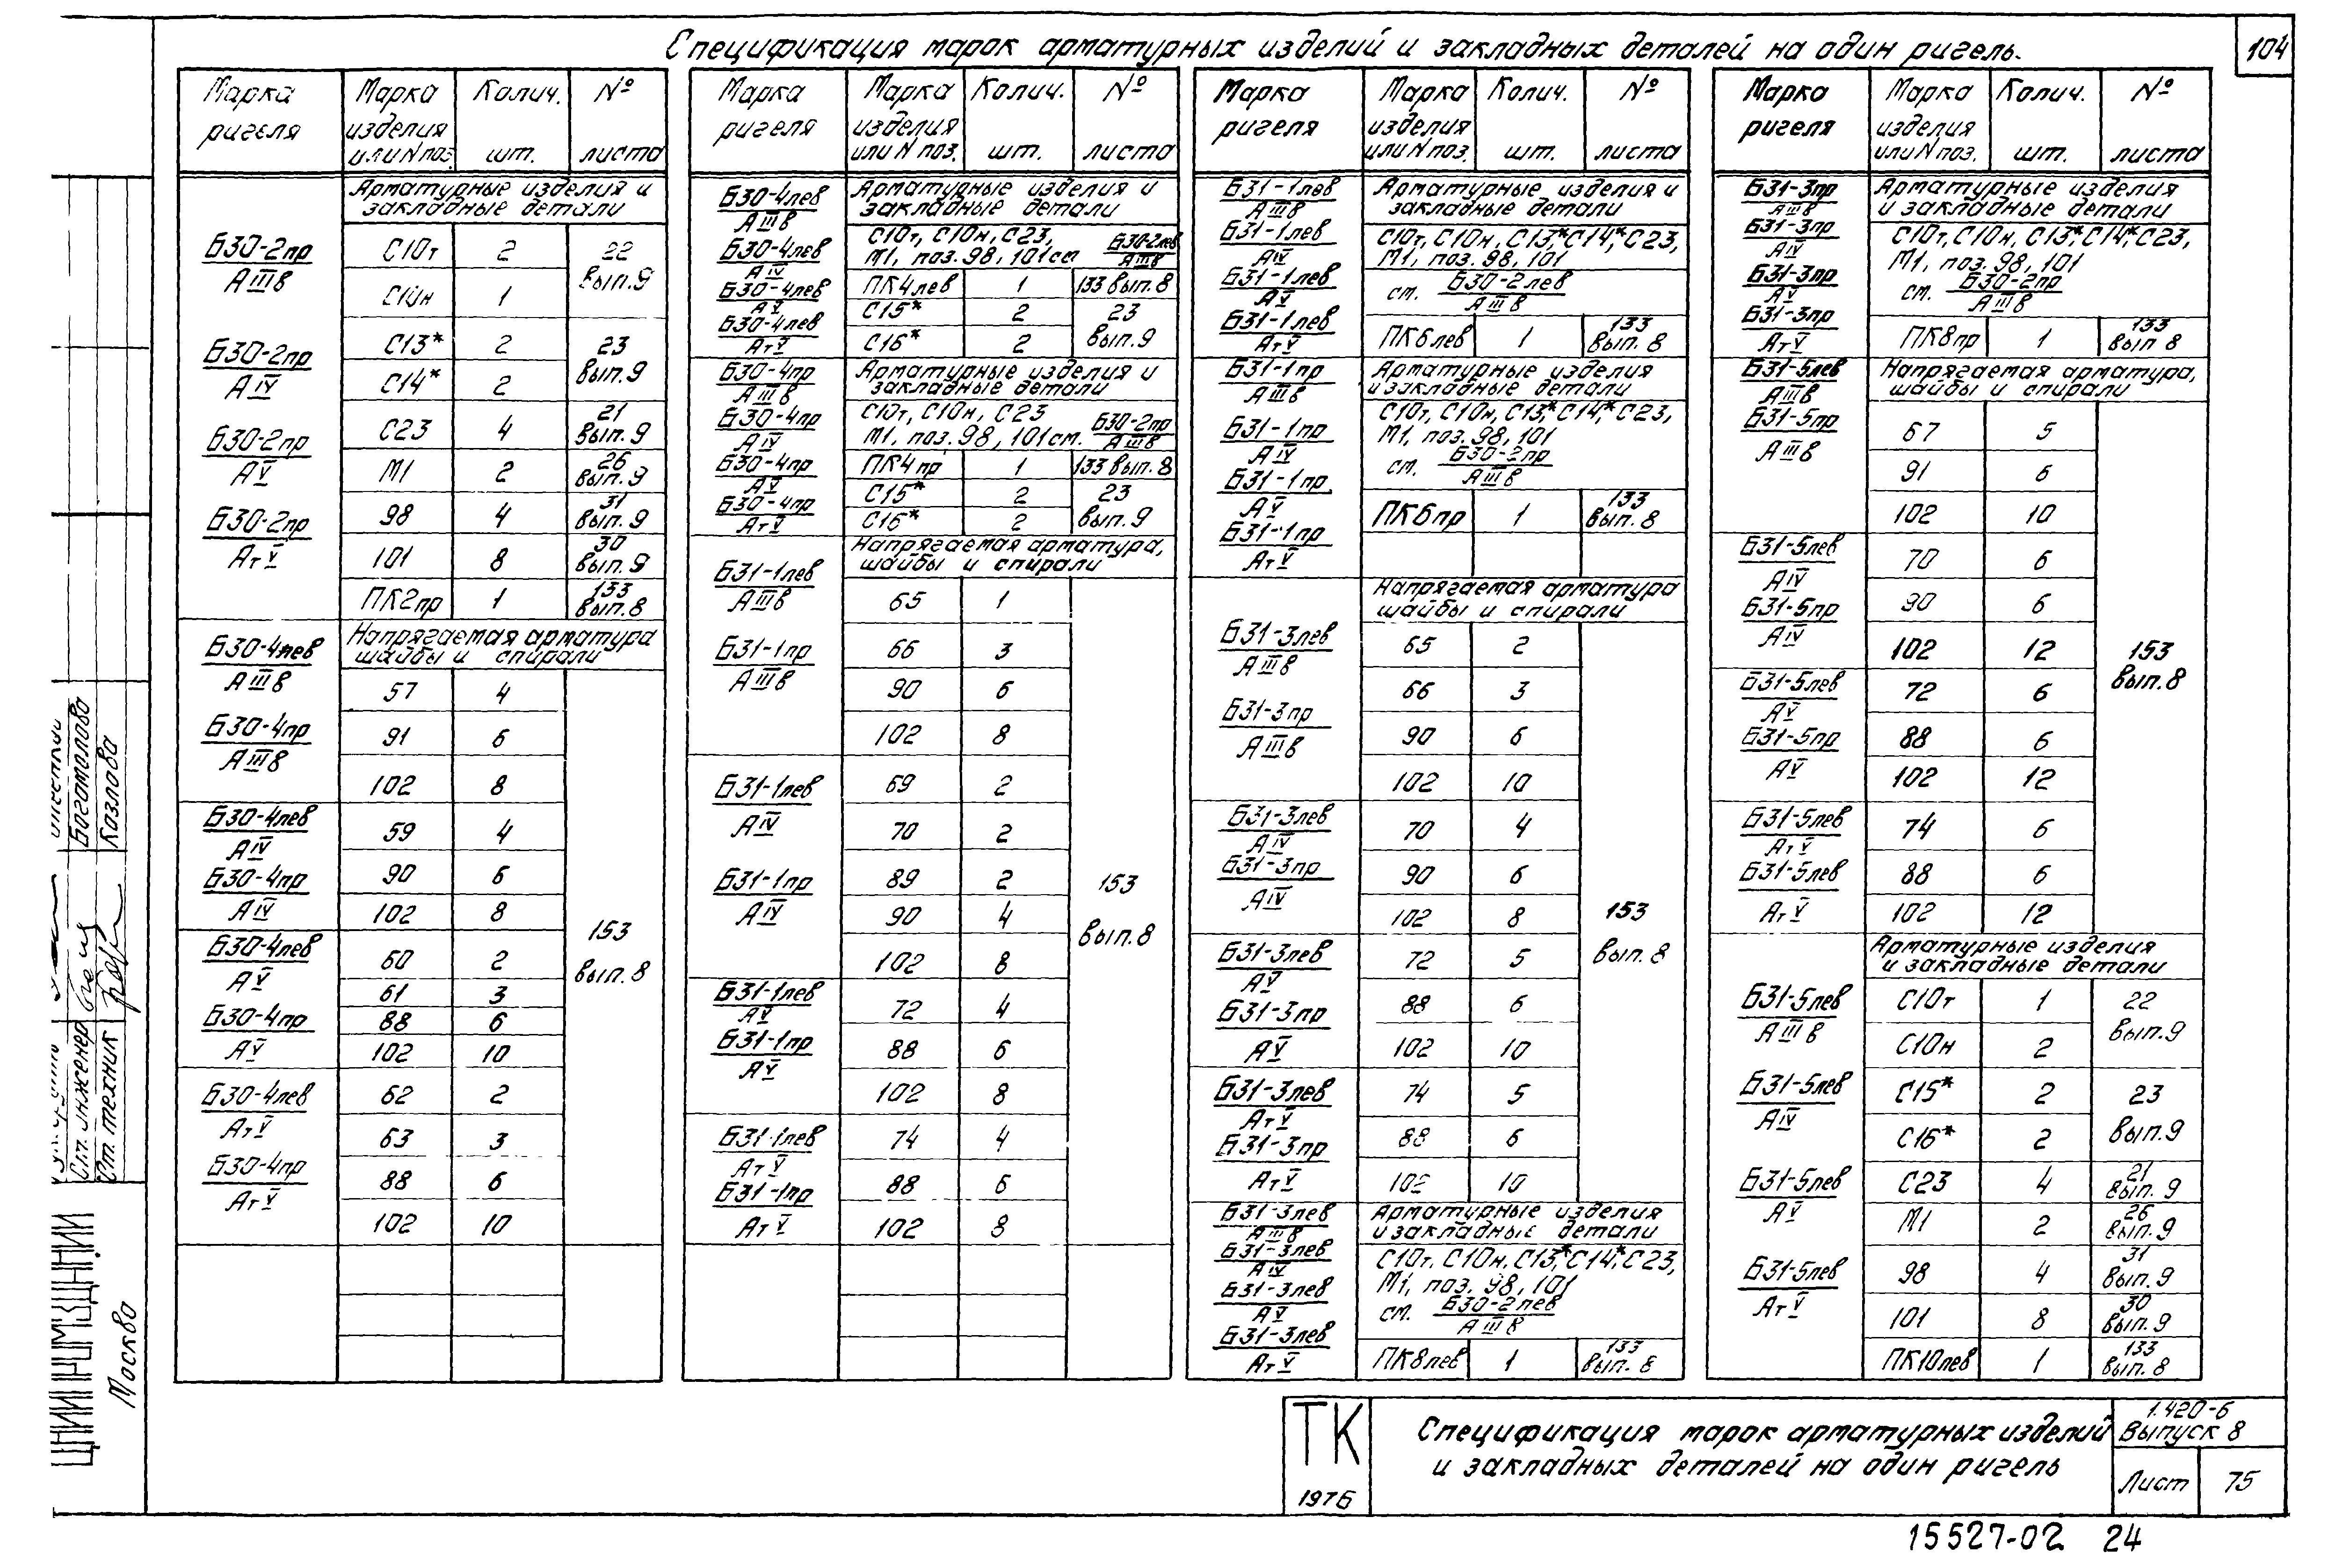 Спецификация марок арматурных изделий и закладных деталей на один ригель.
104
Марка ригеля | Марка изделия или N поз. | Колич. шт. | № листа
Арматурные изделия и
закладные детали
Б30-2пр
АIIIв
Б30-2пр
АIV
Б30-2пр
АV
Б30-2пр
АтV
С10т 2 22 вып.9
С10н 1
С13* 2 23 вып.9
С14* 2
С23 4 21 вып.9
М1 2 26 вып.9
98 4 31 вып.9
101 8 30 вып.9
ПК2пр 1 133 вып.8
Напрягаемая арматура
шайбы и спирали
153 вып.8
Б30-4лев
АIIIв
Б30-4пр
АIIIв
57 4
91 6
102 8
Б30-4лев
АIV
Б30-4пр
АIV
59 4
90 6
102 8
Б30-4лев
АV
Б30-4пр
АV
60 2
61 3
88 6
102 10
Б30-4лев
АтV
Б30-4пр
АтV
62 2
63 3
88 6
102 10
Марка ригеля | Марка изделия или N поз. | Колич. шт. | № листа
Б30-4лев
АIIIв
Б30-4лев
АIV
Б30-4лев
АV
Б30-4лев
АтV
Арматурные изделия и
закладные детали
С10т, С10н, С23,
М1, поз. 98, 101 см Б30-2лев АIIIв
ПК4лев 1 133 вып.8
С15* 2 23 вып.9
С16* 2
Б30-4пр
АIIIв
Б30-4пр
АIV
Б30-4пр
АV
Б30-4пр
АтV
Арматурные изделия и
закладные детали
С10т, С10н, С23
М1, поз. 98, 101 см. Б30-2пр АIIIв
ПК4пр 1 133 вып.8
С15* 2 23 вып.9
С16* 2
Напрягаемая арматура,
шайбы и спирали
153 вып.8
Б31-1лев
АIIIв
Б31-1пр
АIIIв
65 1
66 3
90 6
102 8
Б31-1лев
АIV
Б31-1пр
АIV
69 2
70 2
89 2
90 4
102 8
Б31-1лев
АV
Б31-1пр
АV
72 4
88 6
102 8
Б31-1лев
АтV
Б31-1пр
АтV
74 4
88 6
102 8
Марка ригеля | Марка изделия или N поз. | Колич. шт. | № листа
Б31-1лев
АIIIв
Б31-1лев
АIV
Б31-1лев
АV
Б31-1лев
АтV
Арматурные изделия и
закладные детали
С10т, С10н, С13*, С14*, С23,
М1, поз. 98, 101
см. Б30-2лев АIIIв
ПК6лев 1 133 вып.8
Б31-1пр
АIIIв
Б31-1пр
АIV
Б31-1пр
АV
Б31-1пр
АтV
Арматурные изделия
и закладные детали
С10т, С10н, С13*, С14*, С23,
М1, поз. 98, 101
см. Б30-2пр АIIIв
ПК6пр 1 133 вып.8
Напрягаемая арматура
шайбы и спирали
153 вып.8
Б31-3лев
АIIIв
Б31-3пр
АIIIв
65 2
66 3
90 6
102 10
Б31-3лев
АIV
Б31-3пр
АIV
70 4
90 6
102 8
Б31-3лев
АV
Б31-3пр
АV
72 5
88 6
102 10
Б31-3лев
АтV
Б31-3пр
АтV
74 5
88 6
102 10
Б31-3лев
АIIIв
Б31-3лев
АIV
Б31-3лев
АV
Б31-3лев
АтV
Арматурные изделия
и закладные детали
С10т, С10н, С13*, С14*, С23,
М1, поз. 98, 101
см. Б30-2лев АIIIв
ПК8лев 1 133 вып.8
Марка ригеля | Марка изделия или N поз. | Колич. шт. | № листа
Б31-3пр
АIIIв
Б31-3пр
АIV
Б31-3пр
АV
Б31-3пр
АтV
Арматурные изделия
и закладные детали
С10т, С10н, С13*, С14*, С23,
М1, поз. 98, 101
см. Б30-2пр АIIIв
ПК8пр 1 133 вып 8
Напрягаемая арматура,
шайбы и спирали
153 вып.8
Б31-5лев
АIIIв
Б31-5пр
АIIIв
67 5
91 6
102 10
Б31-5лев
АIV
Б31-5пр
АIV
70 6
90 6
102 12
Б31-5лев
АV
Б31-5пр
АV
72 6
88 6
102 12
Б31-5лев
АтV
Б31-5лев
АтV
74 6
88 6
102 12
Арматурные изделия
и закладные детали
Б31-5лев
АIIIв
Б31-5лев
АIV
Б31-5лев
АV
Б31-5лев
АтV
С10т 1 22 вып.9
С10н 2
С15* 2 23 вып.9
С16* 2
С23 4 21 вып. 9
М1 2 26 вып.9
98 4 31 вып.9
101 8 30 вып.9
ПК10лев 1 133 вып.8
Ст. инженер Богатолова
Ст. техник Козлова
ЦНИИПРОМЗДАНИЙ
Москва
ТК
1976
Спецификация марок арматурных изделий
и закладных деталей на один ригель
1.420-6
Выпуск 8
Лист 75
15527-02 24